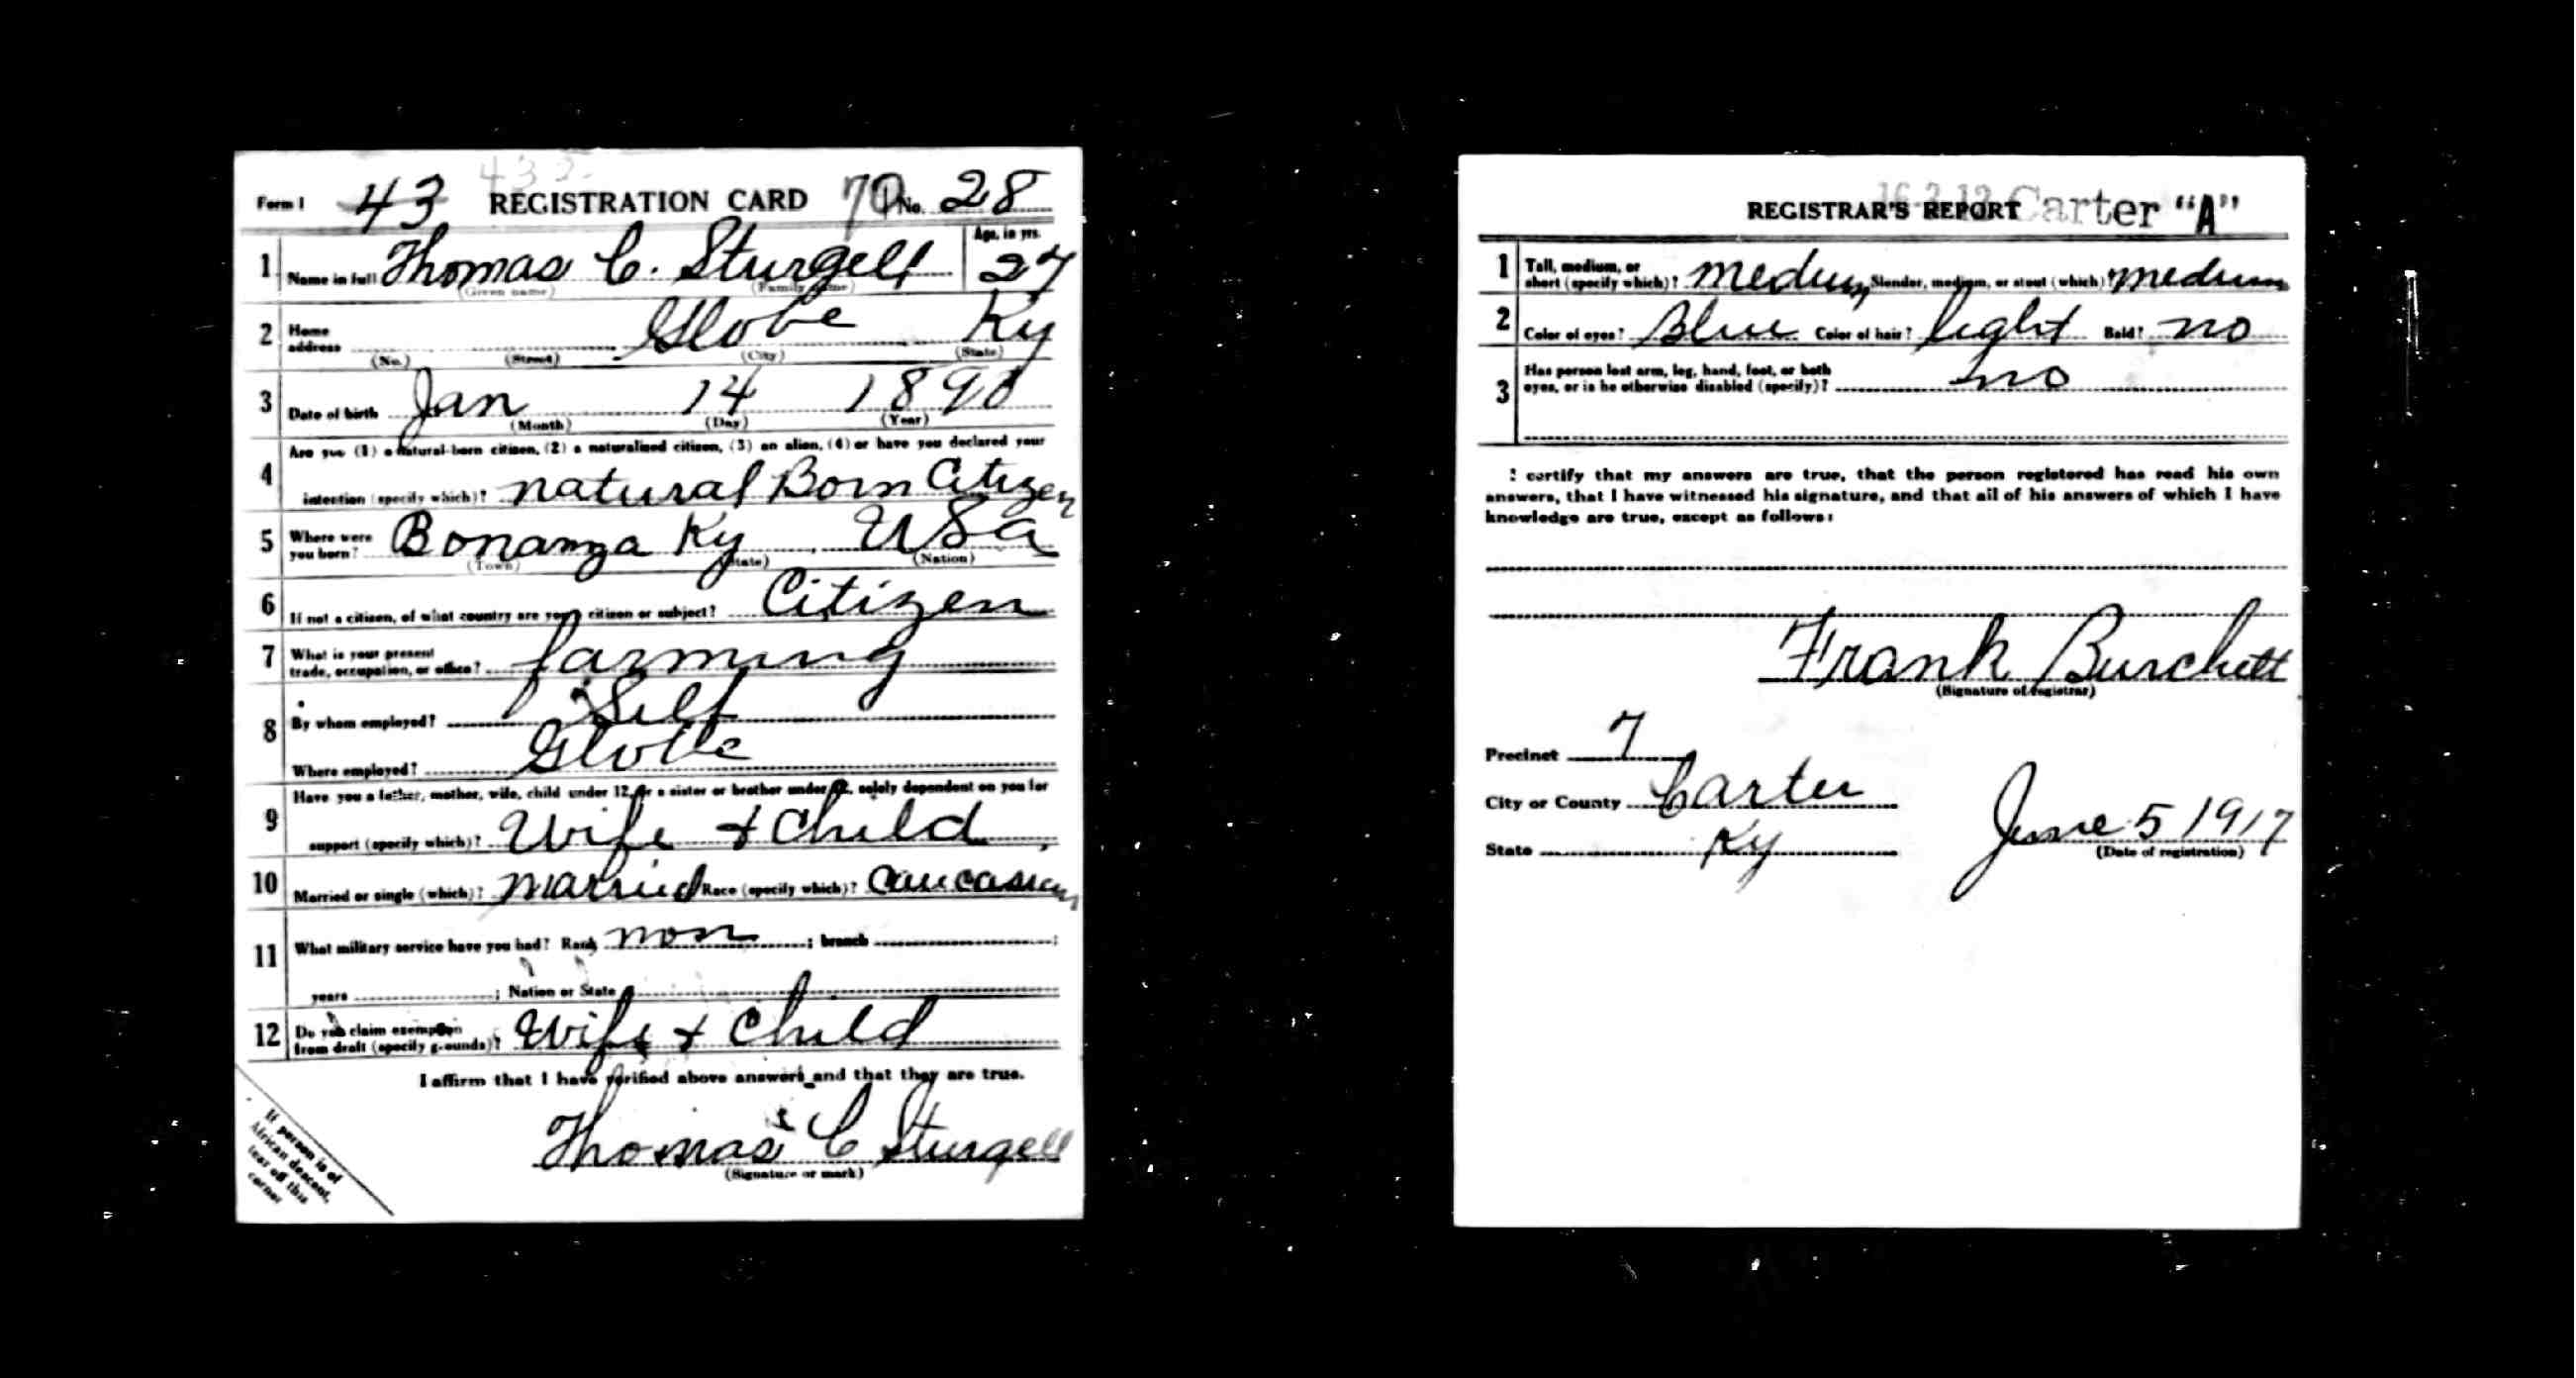 433
Form 1 43 REGISTRATION CARD 70 No. 28
1 Name in full Thomas C. Sturgell Age, in yrs. 27
(Given name) (Family name)
2 Home address Globe Ky
(No.) (Street) (City) (State)
3 Date of birth Jan 14 1890
(Month) (Day) (Year)
4 Are you (1) a natural-born citizen, (2) a naturalized citizen, (3) an alien, (4) or have you declared your
intention (specify which)? natural Born Citizen
5 Where were you born? Bonanza Ky USa
(Town) (State) (Nation)
6 If not a citizen, of what country are you a citizen or subject? Citizen
7 What is your present trade, occupation, or office? farming
8 By whom employed? Self
Where employed? Globe
9 Have you a father, mother, wife, child under 12, or a sister or brother under 12, solely dependent on you for
support (specify which)? Wife + Child
10 Married or single (which)? married Race (specify which)? Caucasian
11 What military service have you had? Rank non ; branch ;
years ; Nation or State
12 Do you claim exemption from draft (specify grounds)? Wife + Child
I affirm that I have verified above answers and that they are true.
Thomas C Sturgell
(Signature or mark)
If person is of
African descent,
tear off this
corner
REGISTRAR'S REPORT Carter "A"
1 Tall, medium, or short (specify which)? medium Slender, medium, or stout (which)? medium
2 Color of eyes? Blue Color of hair? light Bald? no
3 Has person lost arm, leg, hand, foot, or both
eyes, or is he otherwise disabled (specify)? no
I certify that my answers are true, that the person registered has read his own
answers, that I have witnessed his signature, and that all of his answers of which I have
knowledge are true, except as follows:
Frank Burchett
(Signature of registrar)
Precinct 7
City or County Carter
State Ky
June 5 1917
(Date of registration)